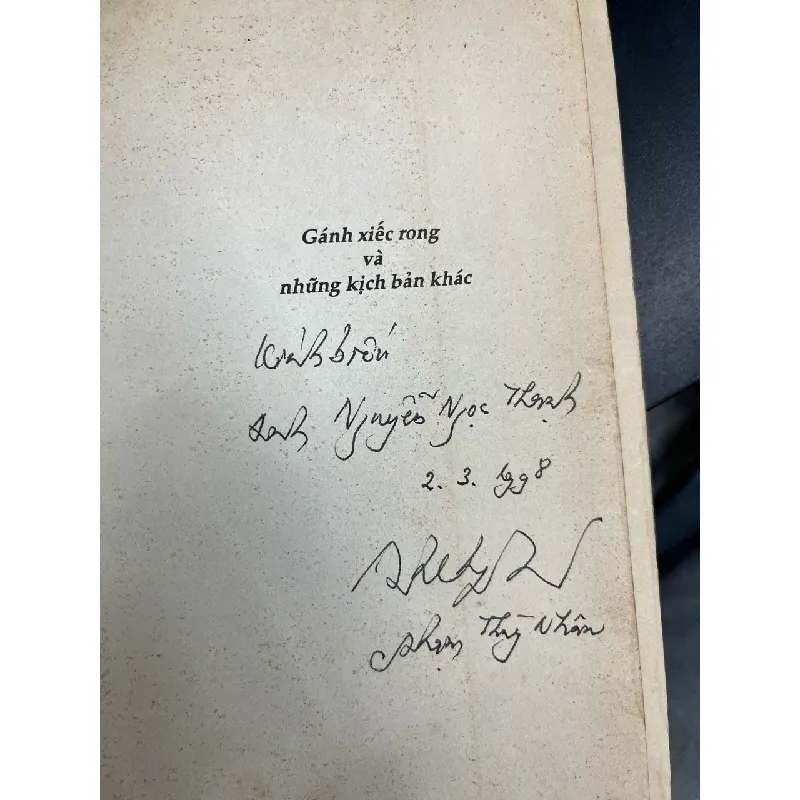 Gánh xiếc rong
và
những kịch bản khác
Kính biếu
anh Nguyễn Ngọc Thạnh
2. 3. 1998
Phạm Thùy Nhân